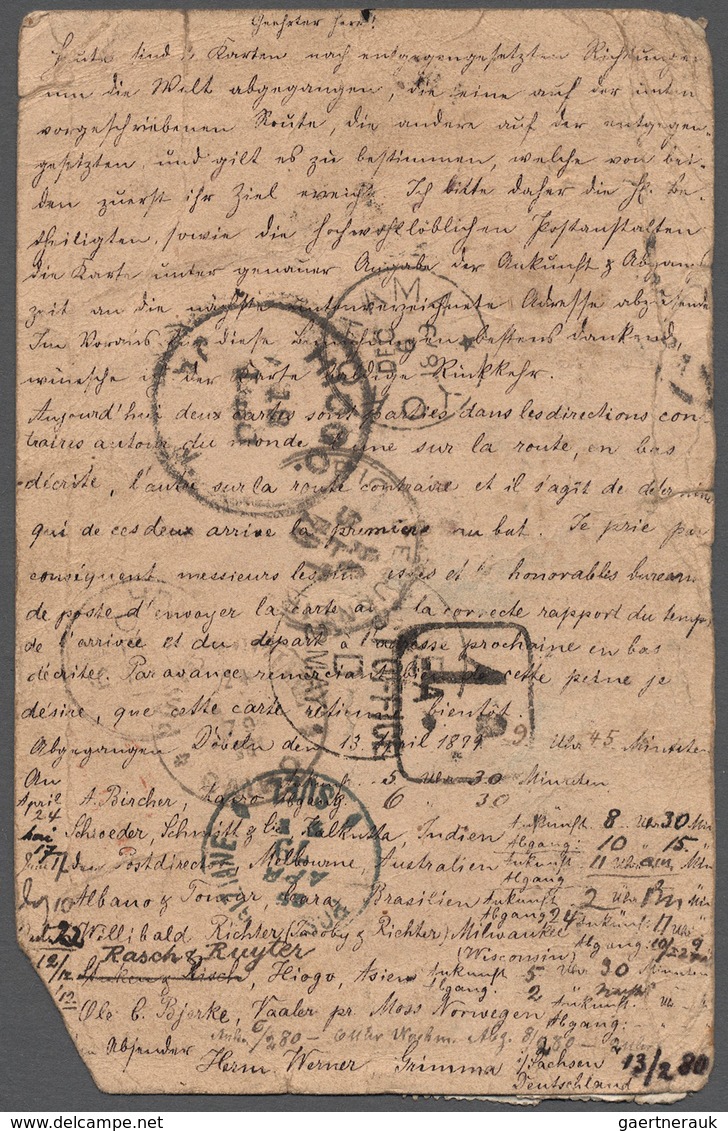 Geehrter Herr!
Heute sind 2 Karten nach entgegengesetzten Richtungen
um die Welt abgegangen, die eine auf der unten
vorgeschriebenen Route, die andere auf der entgegen-
gesetzten, und gilt es zu bestimmen, welche von bei-
den zuerst ihr Ziel erreicht. Ich bitte daher die H. Be-
theiligten, sowie die hochwohllöblichen Postanstalten
die Karte unter genauer Angabe der Ankunft & Abgangs
zeit an die nächste untenverzeichnete Adresse
Im Voraus für diese bestens dankend,
wünsche ich der Karte baldige Rückkehr.
Aujourd'hui deux cartes sont parties dans les directions con-
traires autour du monde, l'une sur la route, en bas
décrite, l'autre sur la route contraire et il s'agit de détermine
qui de ces deux arrive la première au but. Je prie par
conséquent messieurs les et honorables bureaux
de poste d'envoyer la carte avec la correcte rapport du temps
de l'arrivée et du départ à l'adresse prochaine en bas
décrite. Par avance remerciant bien de cette peine je
désire, que cette carte retienne bientôt.
Abgegangen Döbeln den 13. April 1879 9 Uhr 45 Minuten
An 5 Uhr 30 Minuten
April 24 A. Bircher, Kairo Abgang 6 " 30
Mai 17 Schroeder, Schmidt & Cie Kalkutta, Indien Ankunft 8 Uhr 30 Min
Abgang: 10 " 15 "
Juni 17 den Postdirector Melbourne, Australien Ankunft 11 Uhr am Min
Abgang
10 Albano & Tomar, Para, Brasilien Ankunft 2 Uhr Min
Abgang 24
22 Willibald Richter (Jacoby & Richter) Milwaukee Ankunft: 11 Uhr
(Wisconsin) Abgang: 10/ 9
Rasch & Ruyter
12/12 Hiogo, Asien Ankunft 5 Uhr 30 Minuten
Abgang: 2 "
Ole C. Bjerke, Vaaler pr Moss Norwegen Ankunft: Uhr
Abgang: -
Ank. 6/2 80 - Nachm. Abg. 8/2 80 -
Absender
Herm. Werner, Grimma i/Sachsen 13/2 80
Deutschland
HIOGO
DEC
SUEZ
APR